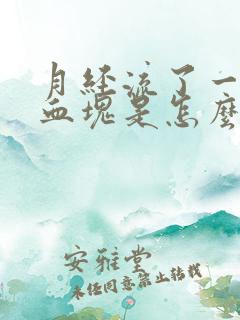 月经流了一
血塊是怎麼
安雅堂
未经同意禁止转载